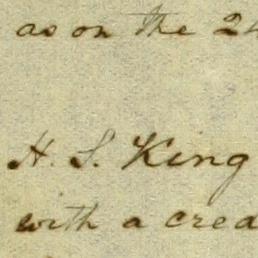 as on the 24
H. S. King
with a cred